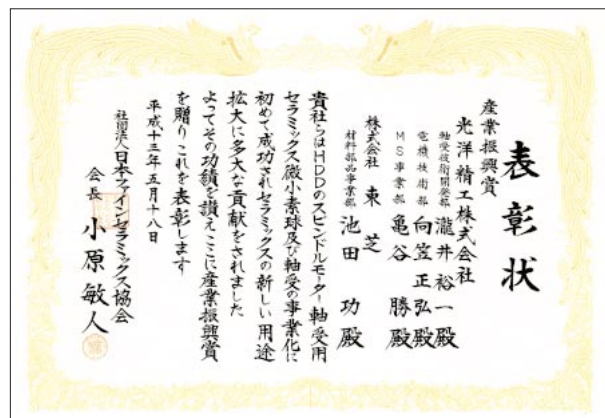 表彰状
産業振興賞
光洋精工株式会社
軸受技術開発部 瀧井裕一殿
電機技術部 向笠正弘殿
MS事業部 亀谷勝殿
株式会社東芝
材料部品事業部 池田功殿
貴社らはHDDのスピンドルモーター軸受用
セラミックス微小素球及び軸受の事業化に
初めて成功されセラミックスの新しい用途
拡大に多大な貢献をされました
よってその功績を讃えここに産業振興賞
を贈りこれを表彰します
平成十三年五月十八日
社団法人日本ファインセラミックス協会
会長 小原敏人